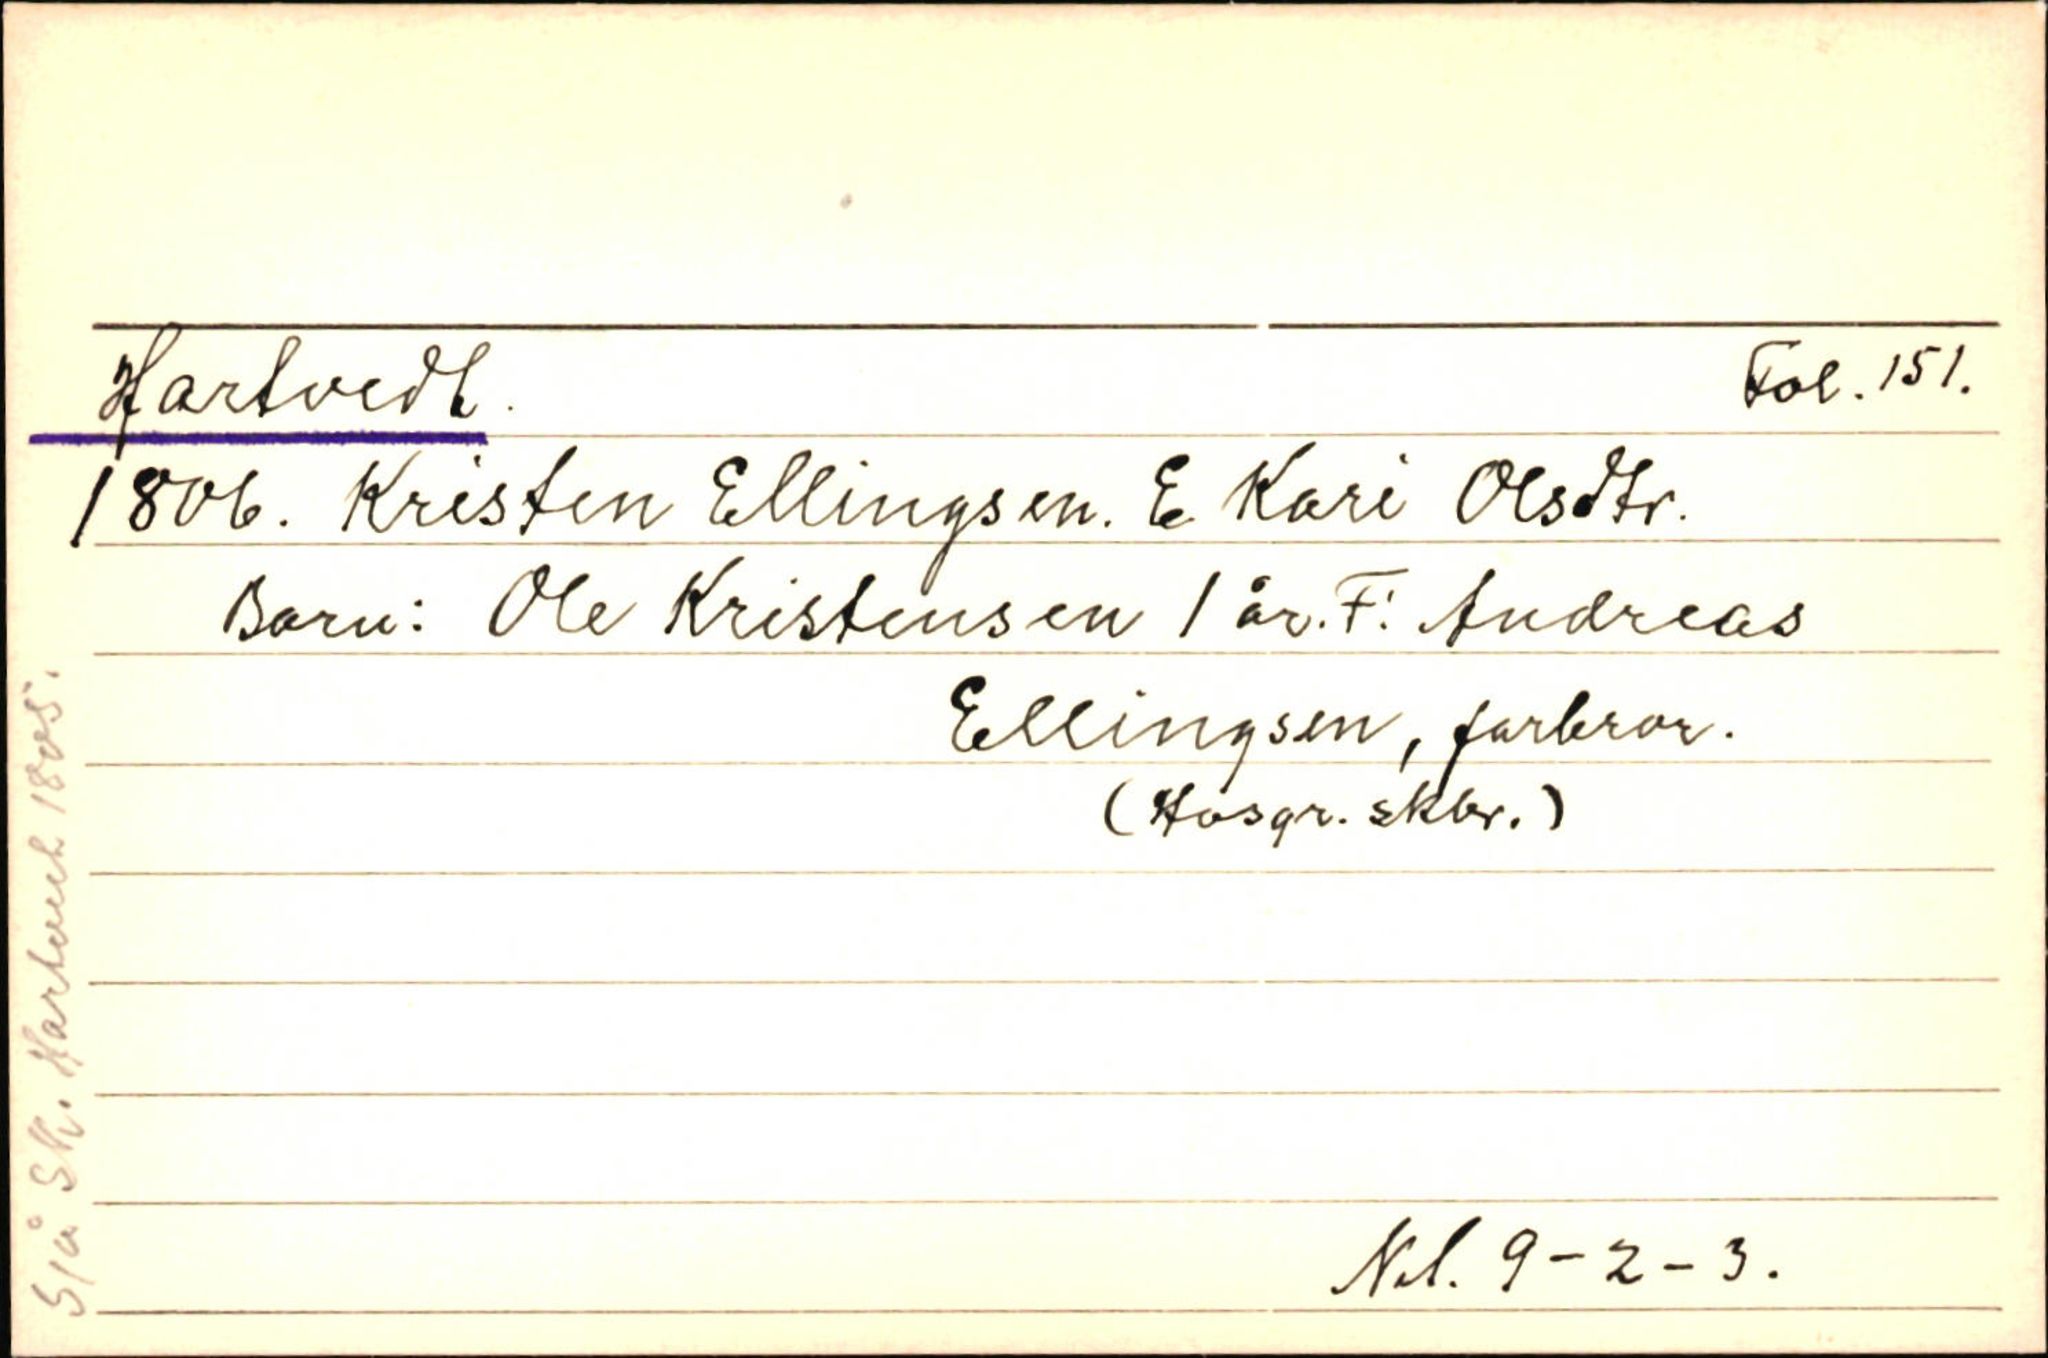 Hartvedt. Fol. 151.
1806. Kristen Ellingsen. E Kari Olsdtr.
Born: Ole Kristensen 1 år. F: Andreas
Ellingsen, farbror.
(Hosgr. skbr.)
Nl. 9-2-3.
Sjå Sk. Hartveit 1805.